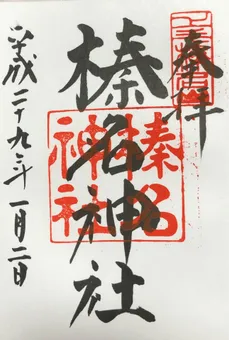 奉拝
榛名神社
榛名
神社
平成二十九年一月二日